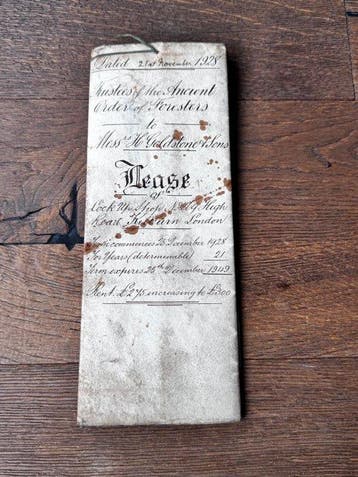 Dated 21st November 1928
Trustees of the Ancient
Order of Foresters
to
Messrs H Goldstone & Sons
Lease
of
Lock Up Shop
High
Road, Kilburn London
Term commences 25 December 1928
For Years (determinable) 21
Term expires 25th December 1949
Rent £275 increasing to £300